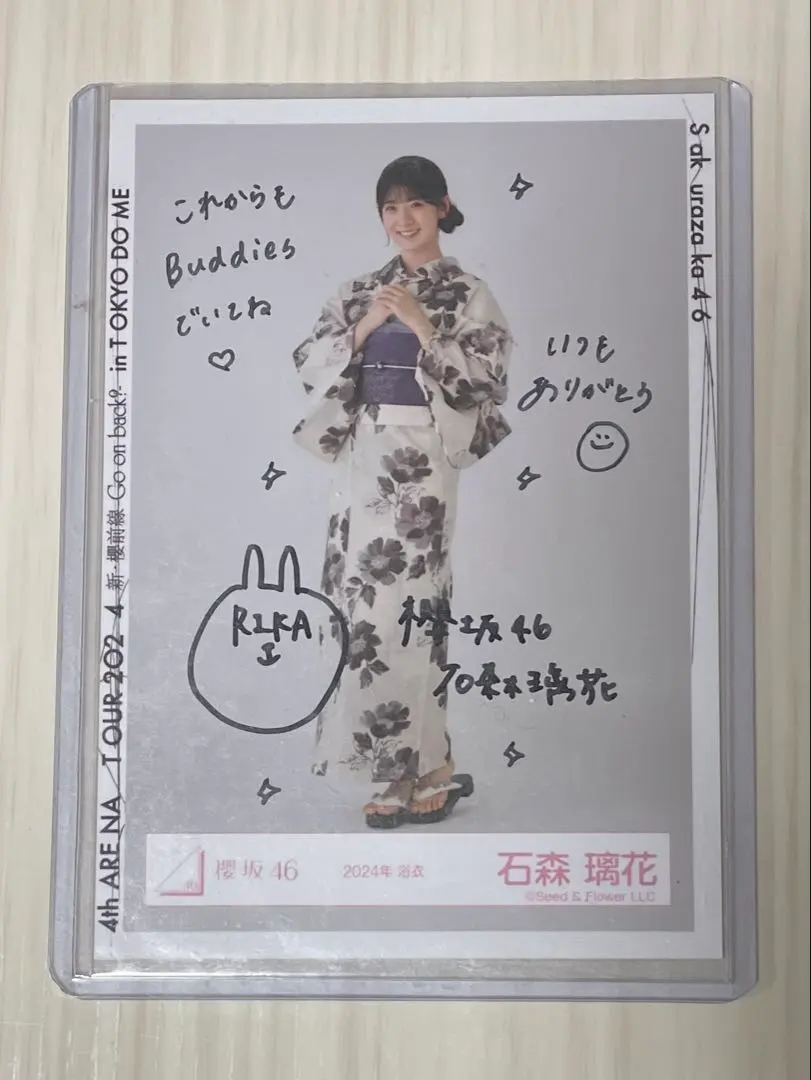 4th ARENA TOUR 2024 新・櫻前線 -Go on back?- in TOKYO DOME
Sakurazaka46
これからも
Buddies
でいてね
♡
いつも
ありがとう
RIKA
櫻坂46
石森璃花
櫻坂46
2024年 浴衣
石森 璃花
©Seed & Flower LLC